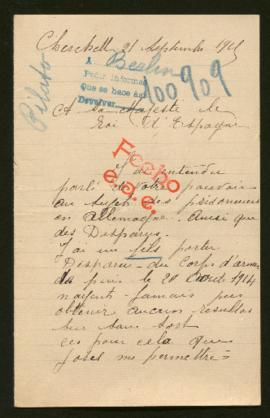 Cherchell 21 Septembre 191
Pilato
A Berlin
Pedir informes
que se hace aqui
Devolver
100909
A sa Majesté le
Roi d'Espagne
Fecho
J'ai entendu
parlé de votre pouvoir
au sujet des prisonniers
en Allemagne. Ainsi que
des Disparus
J'ai un fils porter
Disparu du Corps d'armée
du 20 Août 1914
n'ayant jamais pus
obtenir aucuns resultas
sur sort
ces pour cela que
me permettre